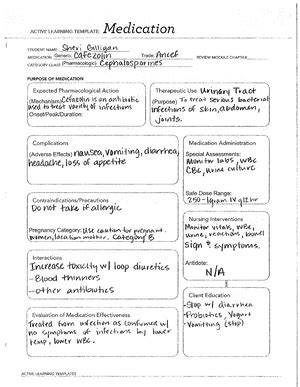 ACTIVE LEARNING TEMPLATE: Medication
STUDENT NAME Sheri Gilligan
MEDICATION Generic: Cafezolin Trade: Ancef REVIEW MODULE CHAPTER
CATEGORY CLASS (Pharmacologic) Cephalosporines
PURPOSE OF MEDICATION
Expected Pharmacological Action
(Mechanism) Cefazolin is an antibiotic
used to treat variety of infections
Onset/Peak/Duration:
Therapeutic Use Urinary Tract
(Purpose) To treat serious bacterial
infections of skin, abdomen,
joints.
Complications
(Adverse Effects) nausea, vomiting, diarrhea,
headache, loss of appetite
Medication Administration
Special Assessments:
Monitor labs, WBC
CBC, urine culture
Safe Dose Range:
250-1gram IV q12hr
Contraindications/Precautions
Do not take if allergic
Pregnancy Category: Use caution for pregnant
women, lactation mother. Category B
Nursing Interventions
Monitor vitals, WBC,
urine, reactions, bowel
sign & symptoms.
Antidote:
N/A
Interactions
Increase toxicity w/ loop diuretics
- Blood thinners
- other antibiotics
Client Education
- Stop w/ diarrhea
- Probiotics, Yogurt
- Vomitting (stop)
Evaluation of Medication Effectiveness
Treated from infection as confirmed w/
no symptoms of infections by lower
temp, lower WBC.
ACTIVE LEARNING TEMPLATES